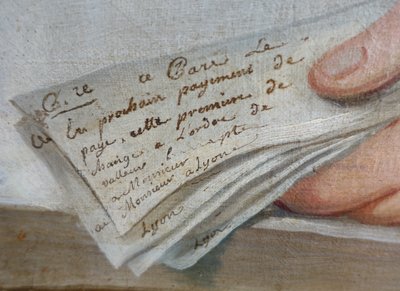 ce Paris Le
En prochain payement de
paye cette premiere de
change a Lordre de
valleur
a Monsieur
Monsieur a Lyon
Lyon
Lyon